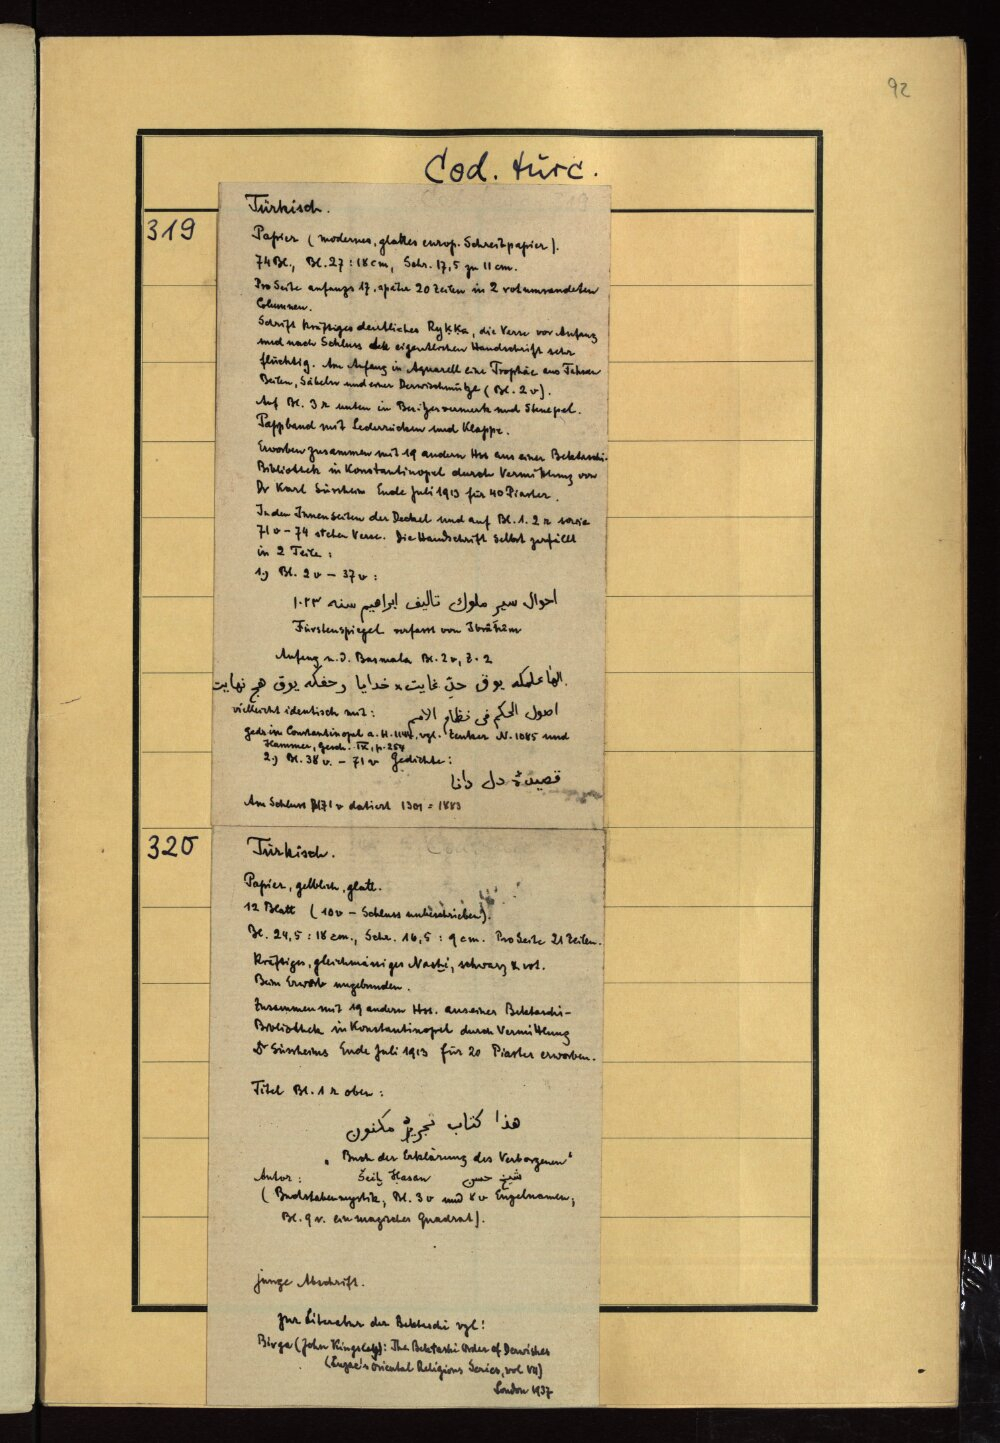 92
Cod. turc.
319
Türkisch.
Papier (modernes, glattes europ. Schreibpapier).
74 Bl., Bl. 27 : 18 cm, Schr. 17,5 zu 11 cm.
Pro Seite anfangs 17, später 20 Zeilen in 2 rotumrandeten
Columnen.
Schrift kräftiges deutliches Ryḳḳa, die Verse vor Anfang
und nach Schluss der eigentlichen Handschrift sehr
flüchtig. Am Anfang in Aquarell eine Trophäe aus Fahnen
Beilen, Säbeln und einer Derwischmütze (Bl. 2 v).
Auf Bl. 3 r unten ein Besitzervermerk und Stempel.
Pappband mit Lederrücken und Klappe.
Erworben zusammen mit 19 andern Hss aus einer Bektaschi-
Bibliothek in Konstantinopel durch Vermittlung von
Dr Karl Süssheim Ende Juli 1913 für 40 Piaster.
In den Innenseiten der Deckel und auf Bl. 1. 2 r sowie
71 v – 74 stehen Verse. Die Handschrift selbst zerfällt
in 2 Teile :
1.) Bl. 2 v – 37 v :
احوال سير ملوك تاليف ابراهيم سنه ١٠٢٣
Fürstenspiegel verfasst von Ibrāhīm
Anfang n. d. Basmala Bl. 2 v, Z. 2
الها علمكه يوق حد غايت * خدايا رحمكه يوق هيچ نهايت
vielleicht identisch mit : اصول الحكم فى نظام الامم
gedr. in Constantinopel a. H. 1144, vgl. Zenker N. 1085 und
Hammer, Gesch. IX, p. 254
2.) Bl. 38 v. – 71 v Gedichte :
قصيدهٔ دل دانا
Am Schluss Bl 71 v datiert 1301 = 1883
320
Türkisch.
Papier, gelblich, glatt.
12 Blatt (10 v – Schluss unbeschrieben).
Bl. 24,5 : 18 cm., Schr. 16,5 : 9 cm. Pro Seite 21 Zeilen.
Kräftiges, gleichmässiges Nasḫī, schwarz & rot.
Beim Erwerb ungebunden.
Zusammen mit 19 andern Hss. aus einer Bektaschi-
Bibliothek in Konstantinopel durch Vermittlung
Dr Süssheims Ende Juli 1913 für 20 Piaster erworben.
Titel Bl. 1 r oben :
هذا كتاب مكنون
„Buch der Erklärung des Verborgenen“
Autor : Šeiḫ Ḥasan شيخ حسن
(Buchstabenmystik, Bl. 3 v und 8 v Engelnamen;
Bl. 9 v. ein magisches Quadrat).
junge Abschrift.
Zur Literatur der Bektaschi vgl :
Birge (John Kingsley): The Bektashi Order of Dervishes
(Luzac's Oriental Religions Series, vol VII)
London 1937